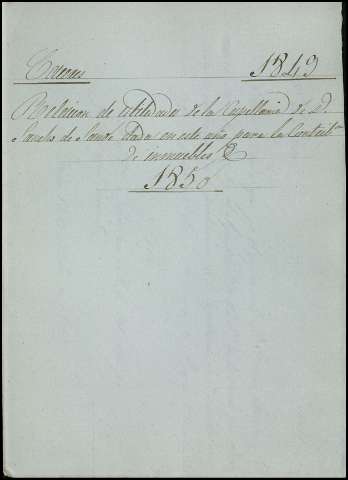 Cáceres 1849
Relacion de utilidades de la Capellania de D.
Sancho de Sande dada en este año para la Contribon
de inmuebles
1850